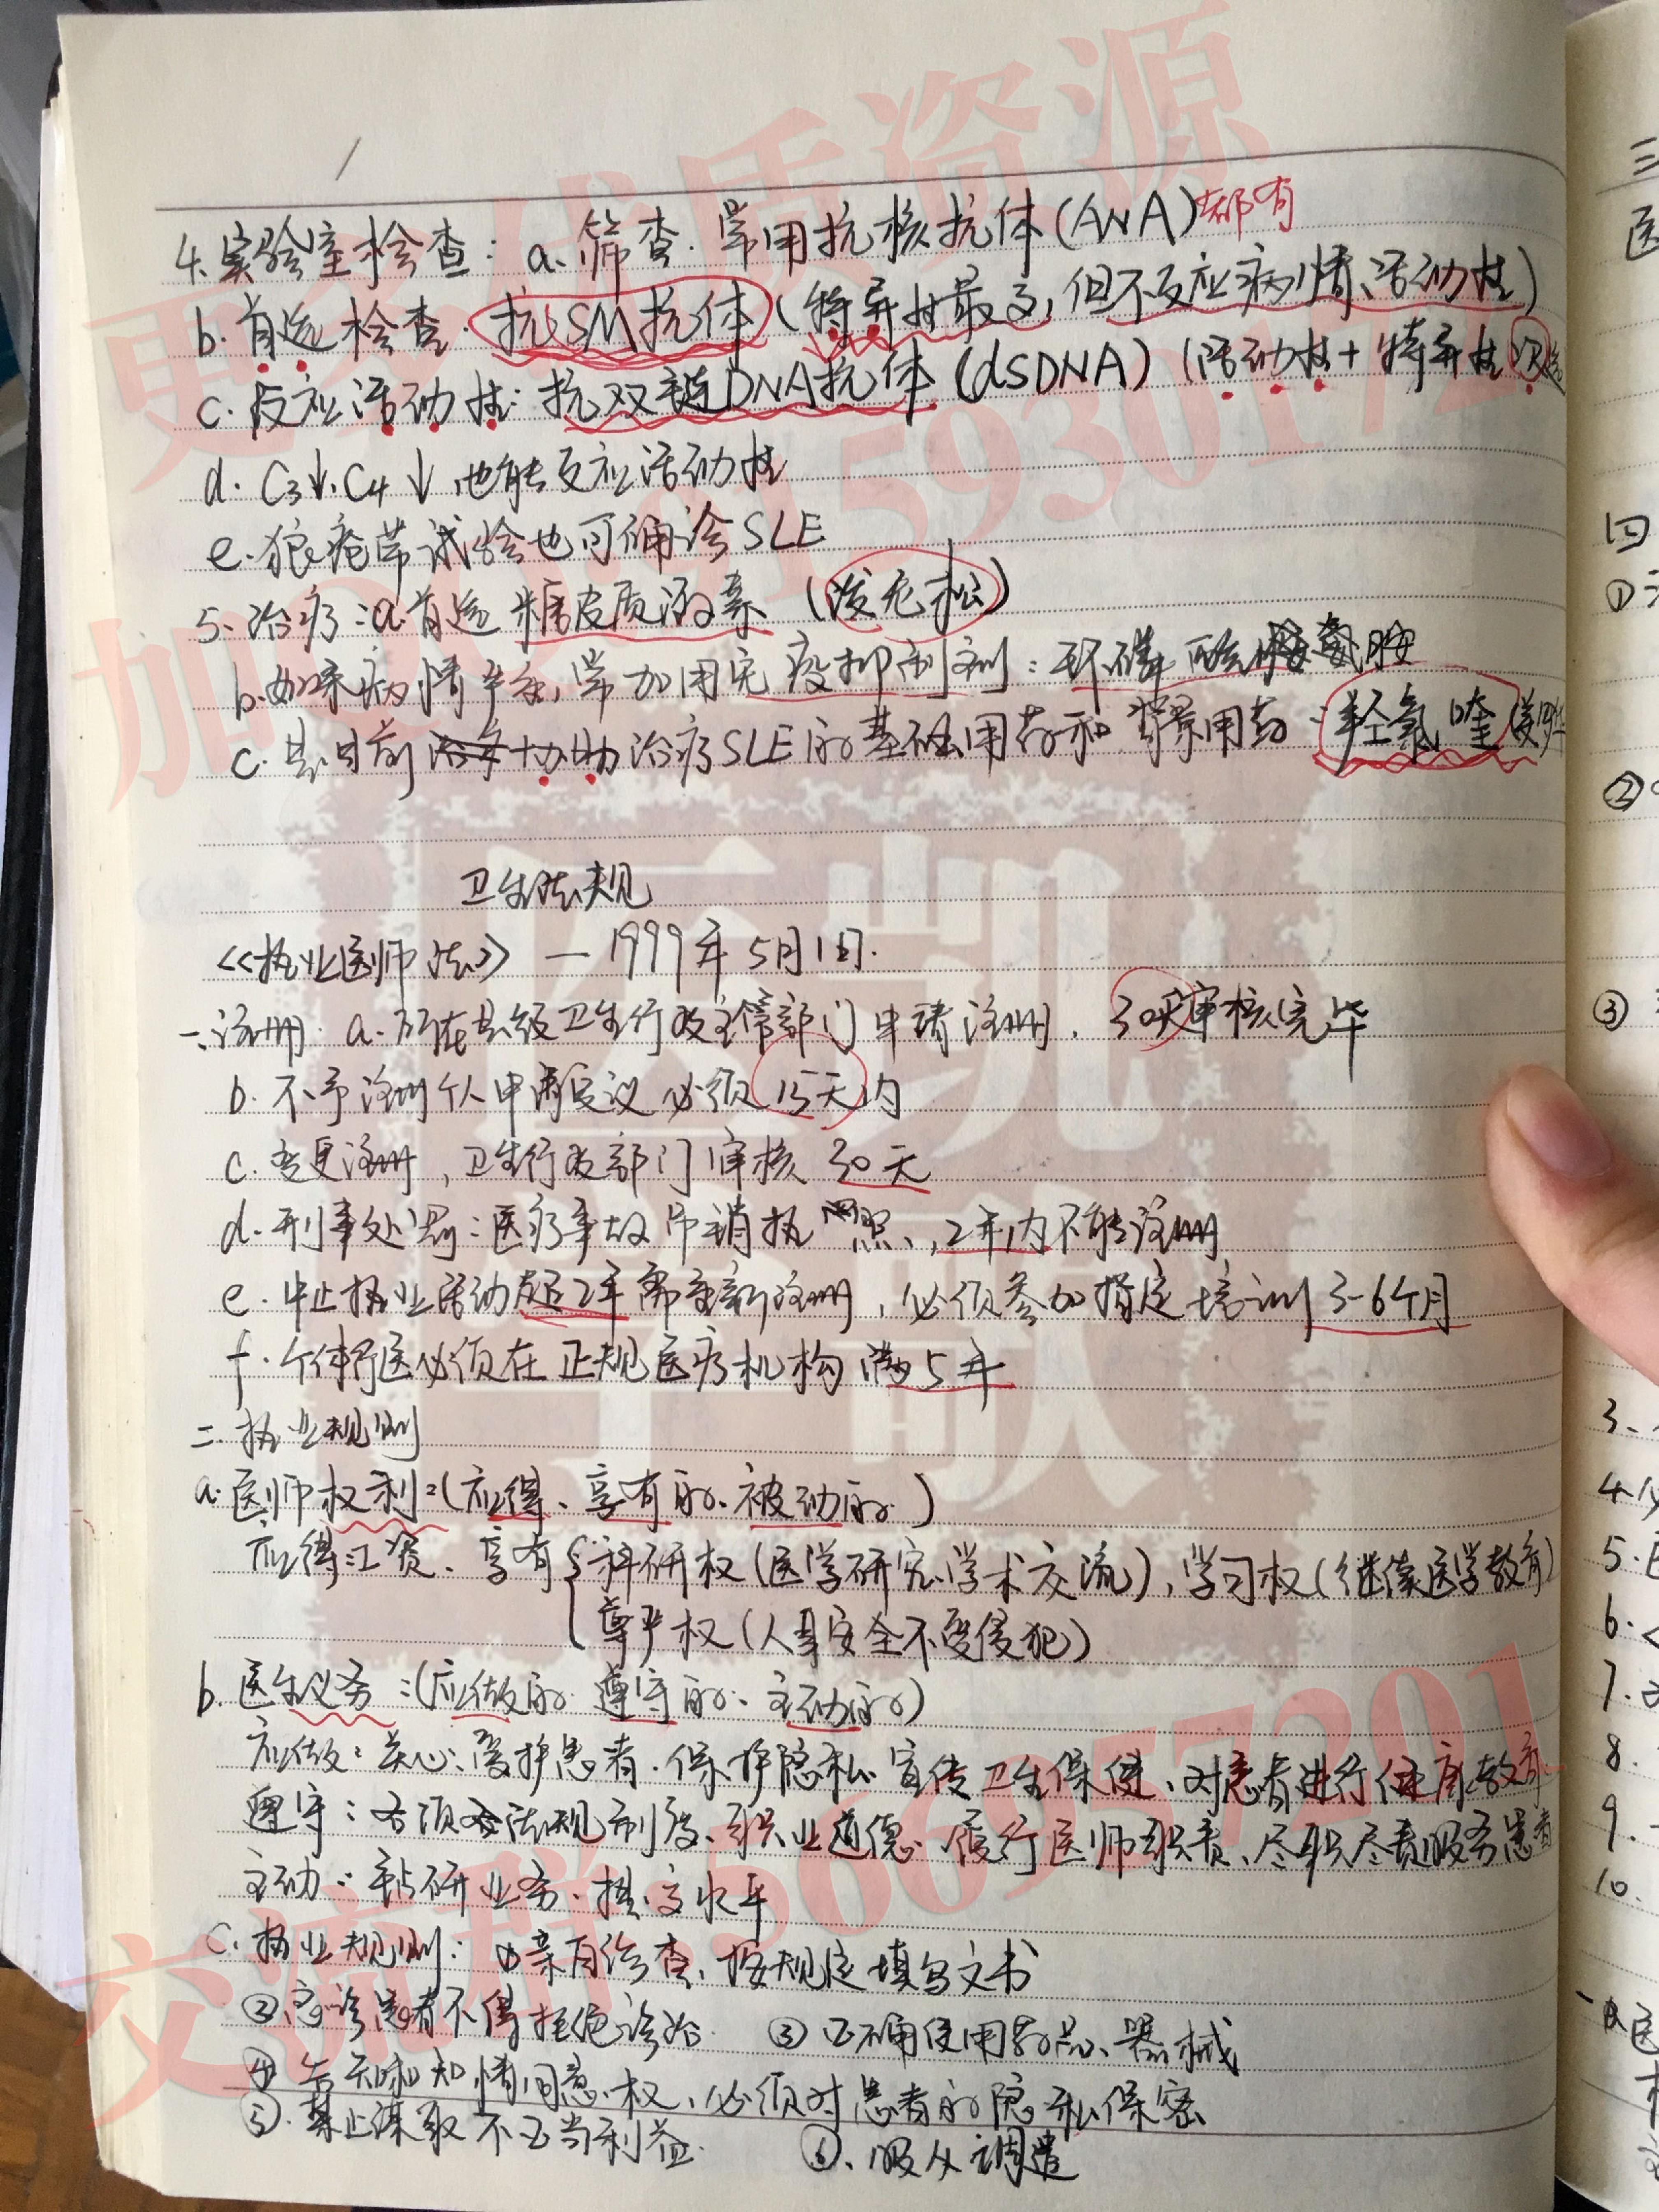 4.实验室检查：a.筛查.常用抗核抗体(ANA)都有
b.首选检查.抗SM抗体(特异性最高,但不反应病情、活动性)
c.反应活动性:抗双链DNA抗体(dSDNA)(活动性+特异性次选
d.C3↓.C4↓,也能反应活动性
e.狼疮带试验也可确诊SLE
5.治疗:a.首选糖皮质激素(泼尼松)
b.如果病情严重,常加用免疫抑制剂:环磷酰胺
c.是目前协助治疗SLE的基础用药和背景用药:羟氯喹
卫生法规
《执业医师法》—1999年5月1日.
一.注册.a.所在县级卫生行政主管部门申请注册,30天审核完毕
b.不予注册个人申请复议必须15天内
c.变更注册,卫生行政部门审核30天
d.刑事处罚:医疗事故吊销执照,2年内不能注册
e.中止执业活动超2年需重新注册,必须参加指定培训3-6个月
f.个体行医必须在正规医疗机构满5年
二.执业规则
a.医师权利:(应得、享有的、被动的)
应得:工资、享有{科研权(医学研究学术交流),学习权(继续医学教育)
尊严权(人身安全不受侵犯)
b.医生义务:(应做的.遵守的、主动的)
应做:关心、爱护患者.保护隐私.宣传卫生保健、对患者进行健康教育
遵守:各项法规制度、职业道德、履行医师职责、尽职尽责服务患者
主动:钻研业务、提高水平
c.执业规则:①亲自诊查,按规定填写文书
②急诊患者不得拒绝诊治 ③正确使用药品、器械
④告知和知情同意权,必须对患者的隐私保密
⑤.禁止谋取不正当利益. ⑥、服从调遣
三
医
四
①
②
③
3、
4.
5.
6.
7.
8.
9.
10.
医
更多优质资源
医凯
交流群:566957201